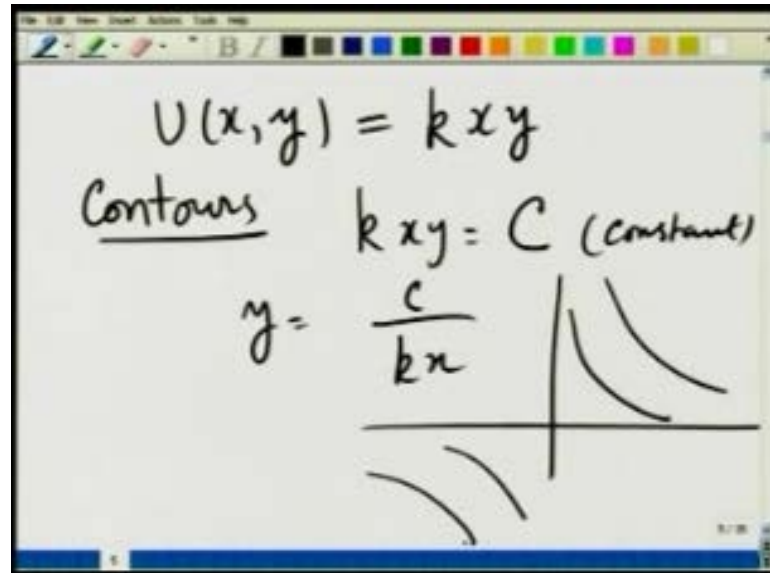 File Edit View Insert Actions Tools Help
B I
U(x,y) = kxy
Contours kxy = C (constant)
y = c / kx